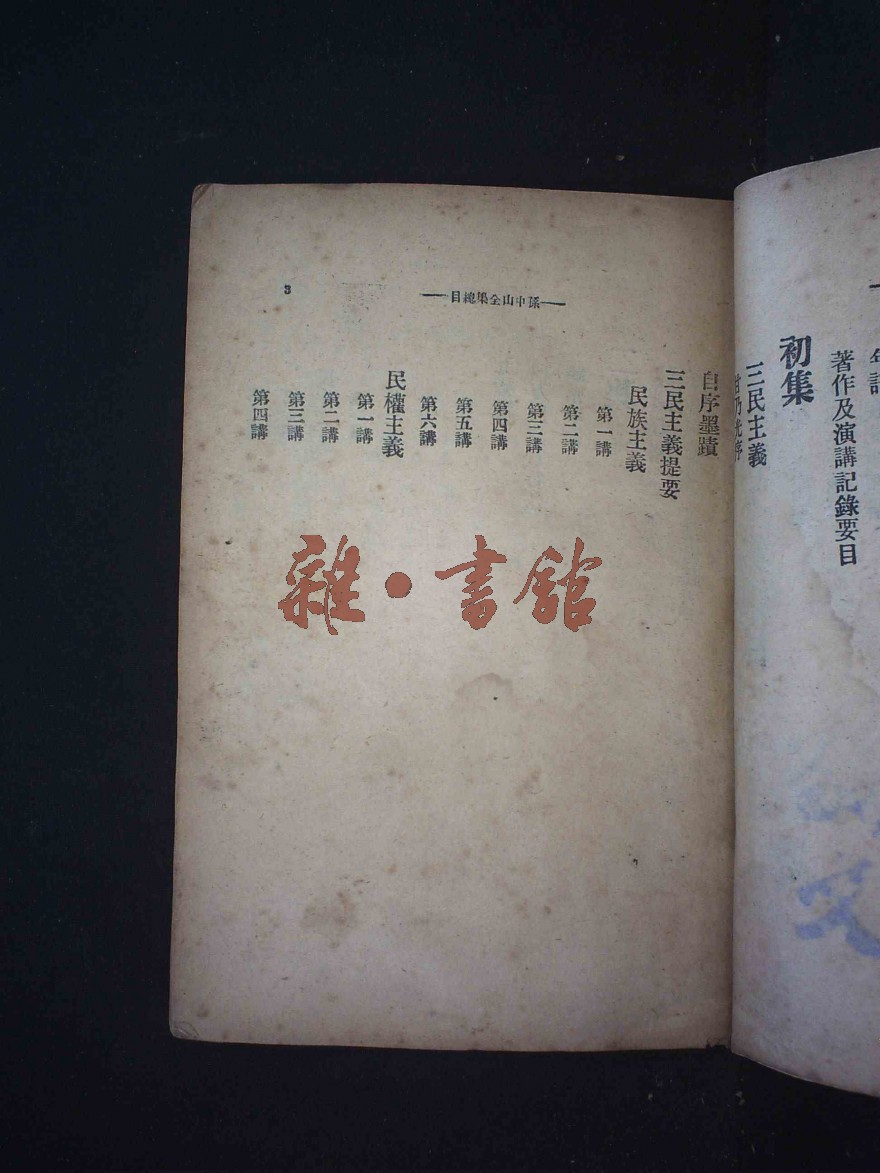 著作及演講記錄要目
初集
三民主義
甘乃光序
3
孫中山全集總目
自序墨蹟
三民主義提要
民族主義
第一講
第二講
第三講
第四講
第五講
第六講
民權主義
第一講
第二講
第三講
第四講
雜·書館